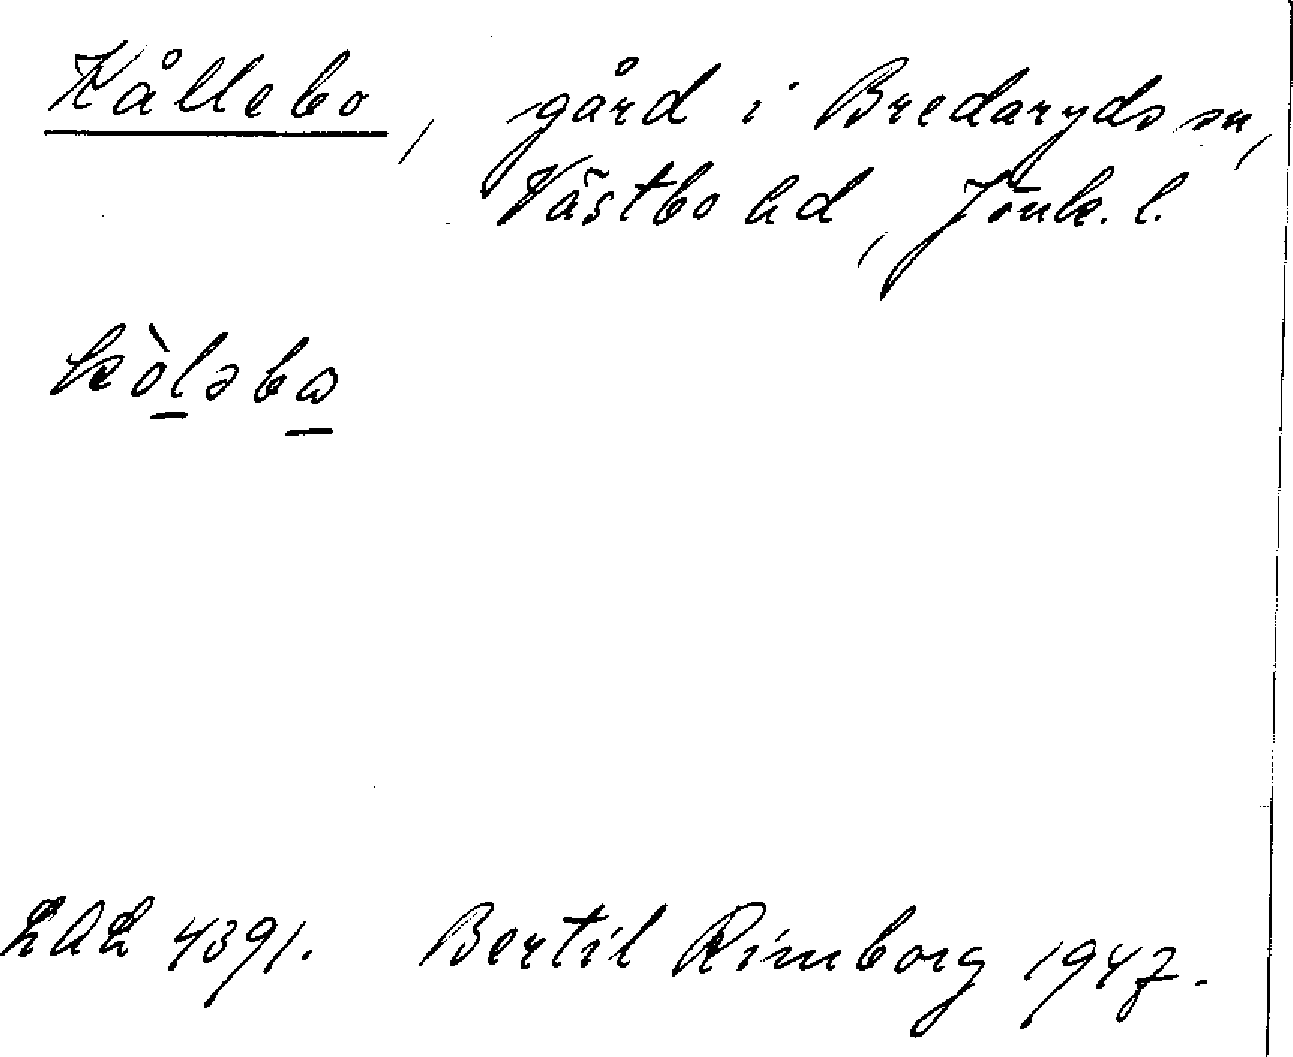 Kållebo, gård i Bredaryds sn,
Västbo hd, Jönk. l.
kòləbω
LAL 4391. Bertil Rimborg 1947.